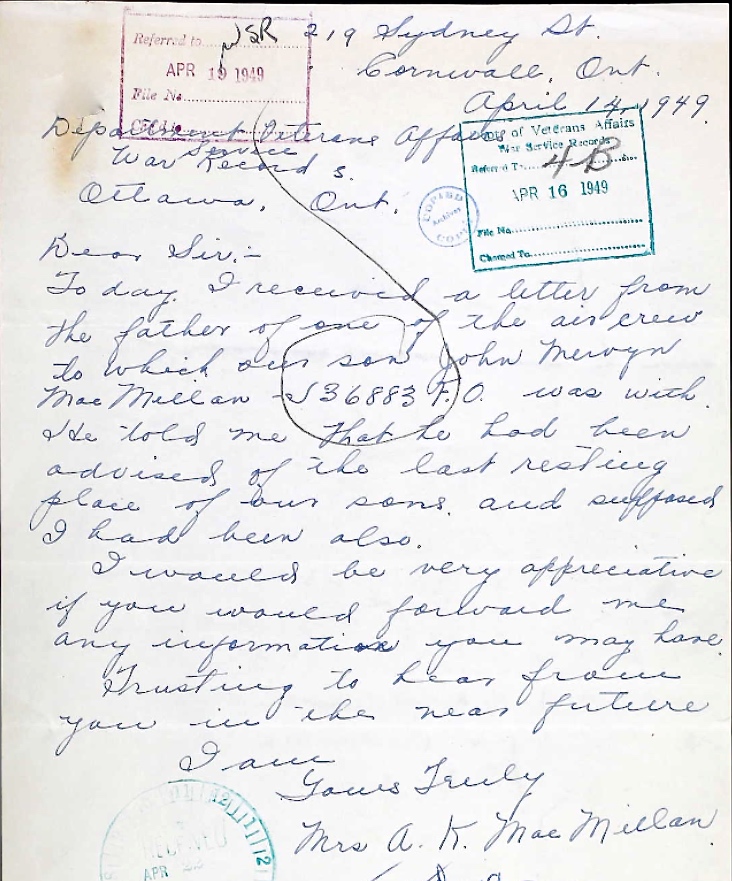 Referred to
WSR
219 Sydney St.
APR 19 1949
Cornwall, Ont.
File No.
April 14, 1949.
Department Veterans Affairs
Service
War Records.
Ottawa, Ont.
Dept of Veterans Affairs
War Service Records
Referred To
4B
APR 16 1949
File No.
Charged To
COPIED
Archives
Dear Sir,:-
Today I received a letter from
the father of one of the air crew
to which our son John Mervyn
MacMillan - J36883 F.O. was with.
He told me that he had been
advised of the last resting
place of our sons, and supposed
I had been also.
I would be very appreciative
if you would forward me
any information you may have.
Trusting to hear from
you in the near future
I am
Yours Truly
Mrs A. K. MacMillan.
RECEIVED
APR 22